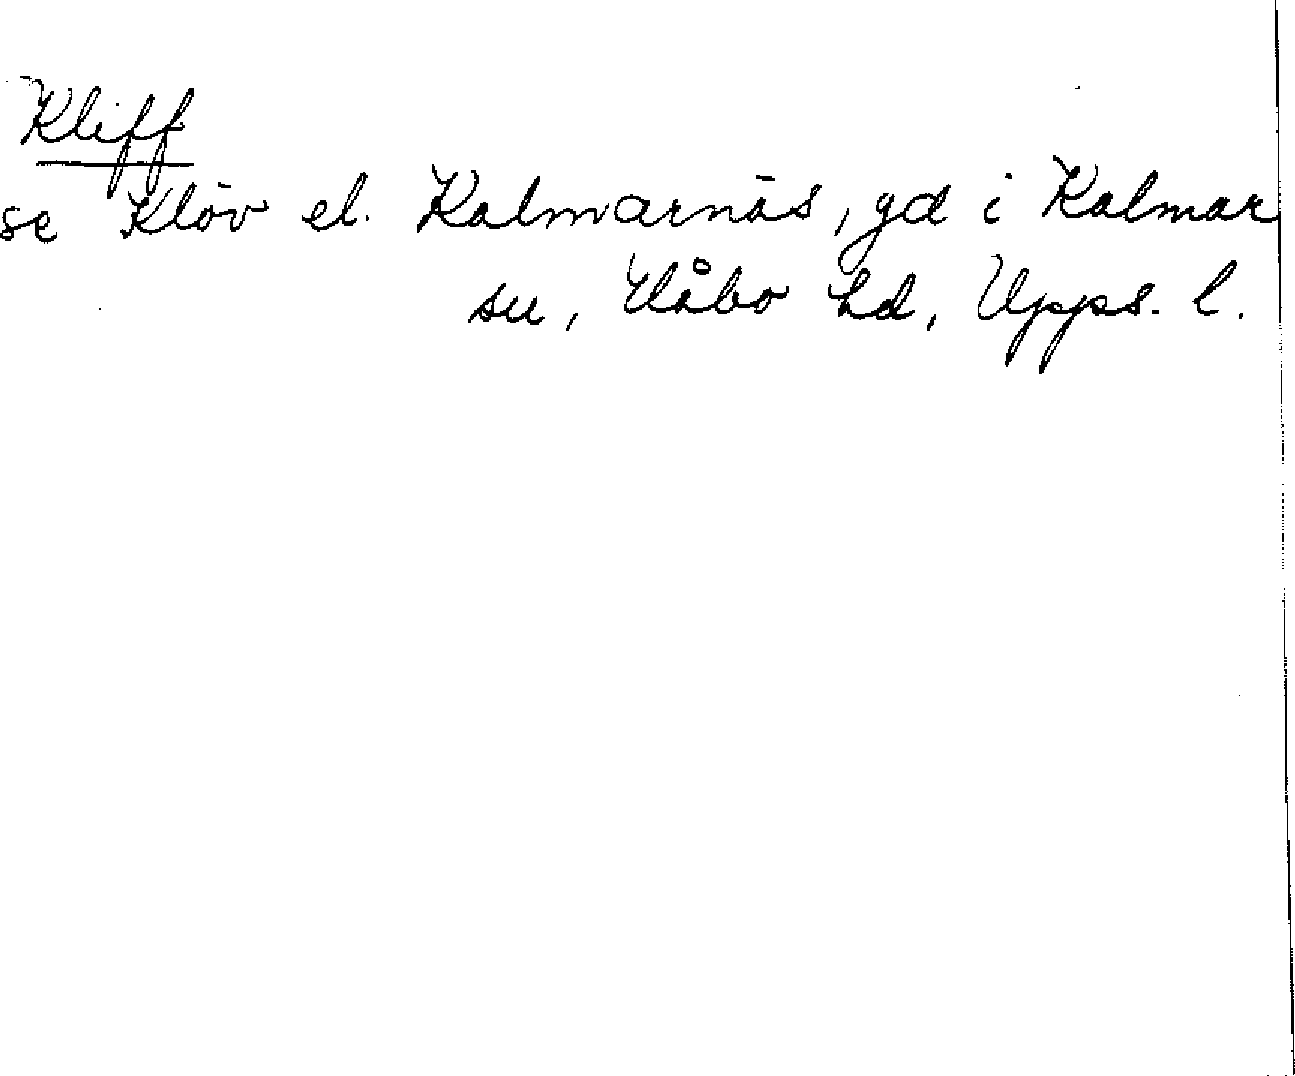 Kliff
se Klöv el. Kalmarnäs, gd i Kalmar
sn, Håbo hd, Upps. l.